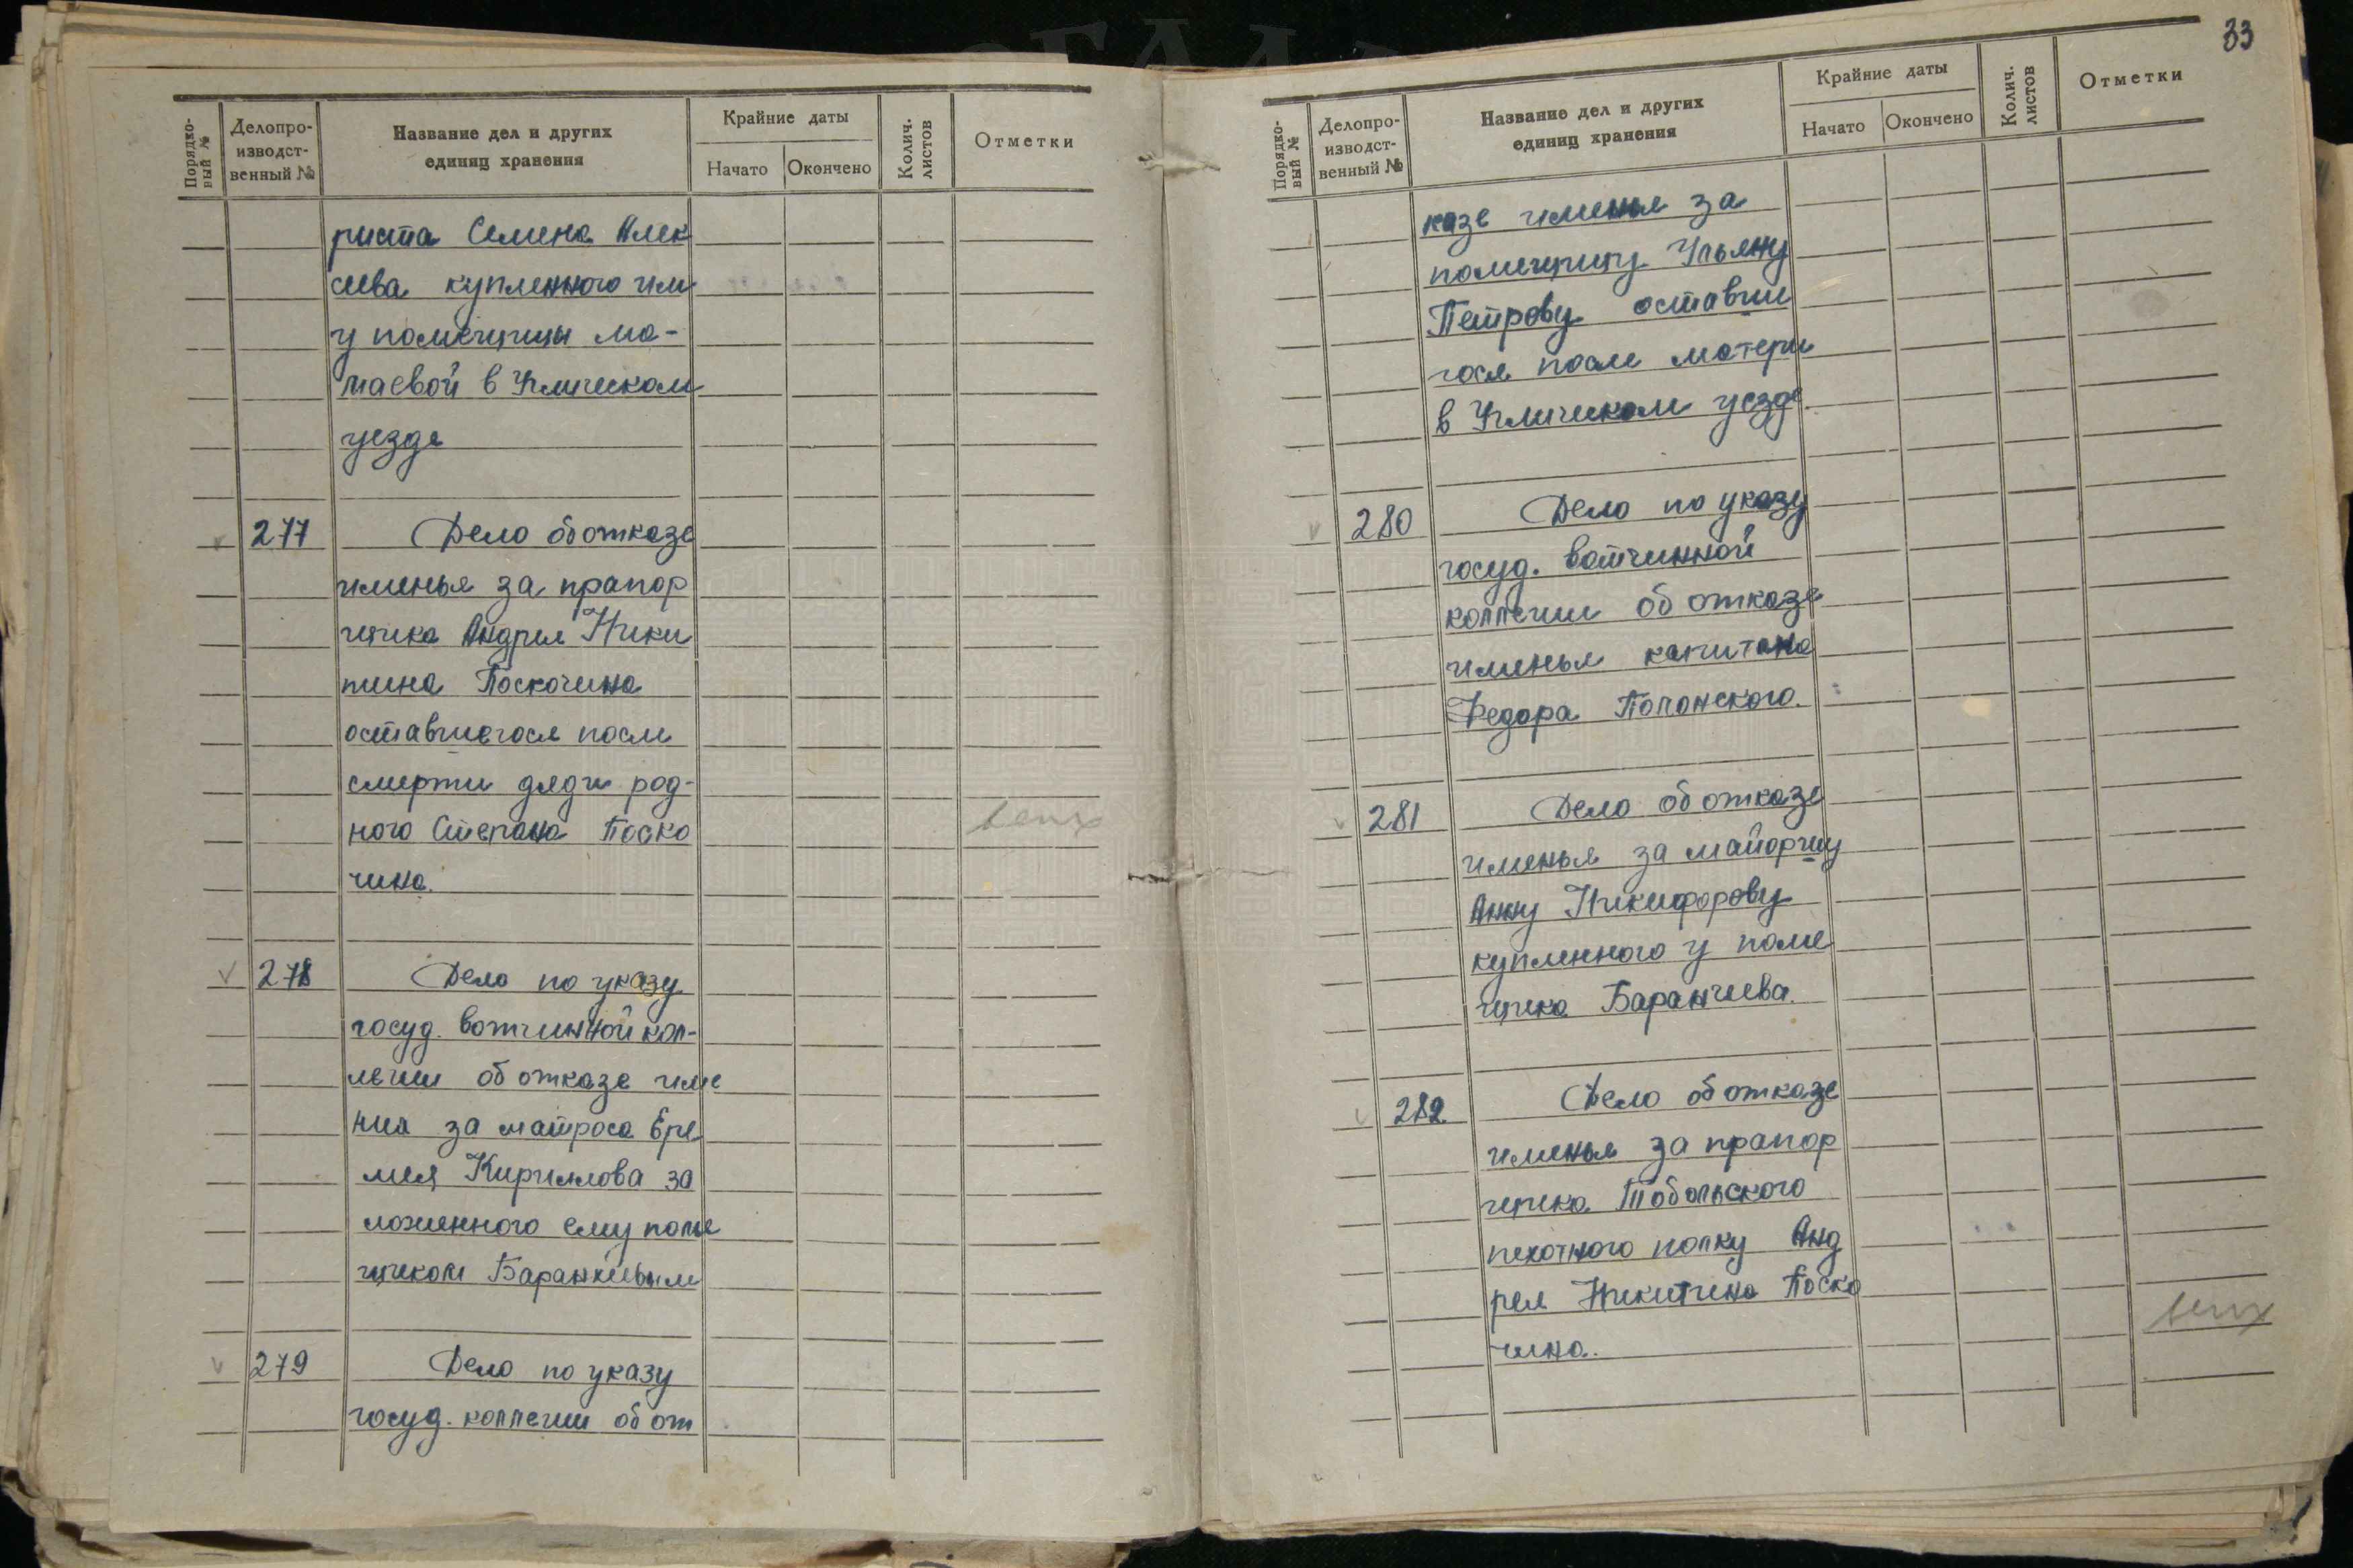 Порядко-
вый №
Делопро-
изводст-
венный №
Название дел и других
единиц хранения
Крайние даты
Начато
Окончено
Колич.
листов
Отметки
риста Семена Алек
сеева купленного им
у помещицы Ма-
маевой в Угличском
уезде
277
Дело об отказе
именья за прапор
щика Андрея Ники
тина Поскочина
оставшегося после
смерти дяди род-
ного Степана Поско
чина.
278
Дело по указу
госуд. вотчинной кол-
легии об отказе име
ния за матроса Ере
мея Кириллова за
ложенного ему поме
щиком Баранчеевым
279
Дело по указу
госуд. коллегии об от
33
Порядко-
вый №
Делопро-
изводст-
венный №
Название дел и других
единиц хранения
Крайние даты
Начато
Окончено
Колич.
листов
Отметки
казе именья за
помещицу Ульяну
Петрову оставше
гося после матери
в Угличском уезде.
280
Дело по указу
госуд. вотчинной
коллегии об отказе
именья капитана
Федора Полонского.
281
Дело об отказе
именья за майоршу
Анну Никифорову
купленного у поме
щика Баранчеева.
282
Дело об отказе
именья за прапор
щика Тобольского
пехотного полку Анд
рея Никитина Поско
чина.